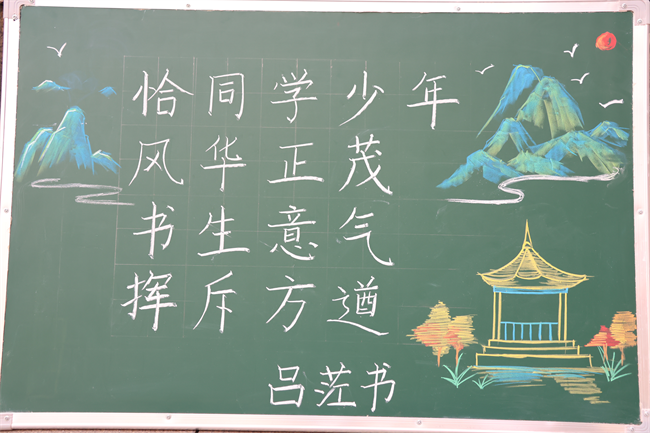 恰同学少年
风华正茂
书生意气
挥斥方遒
吕茫书